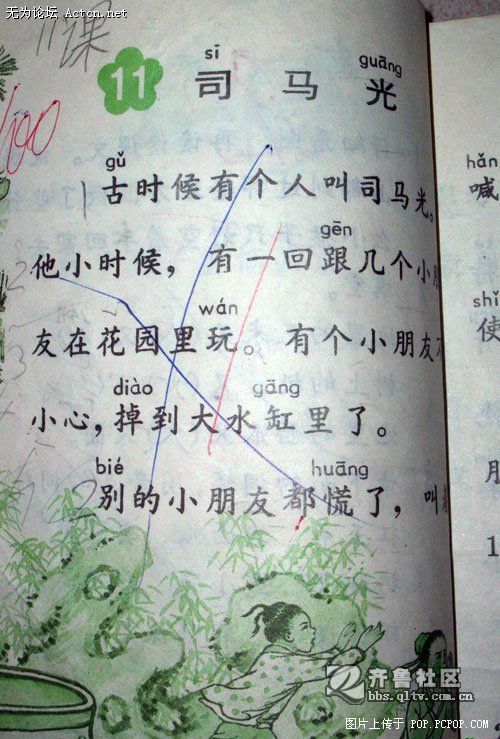 无为论坛 Actcn.net
11课
sī guāng
11 司马光
100
gǔ
古时候有个人叫司马光。
gēn
他小时候，有一回跟几个小
wán
友在花园里玩。有个小朋友
diào gāng
小心，掉到大水缸里了。
bié huāng
别的小朋友都慌了，叫
hǎn
喊
shǐ
使
月
1
齐鲁社区
bbs.qltv.com.cn
图片上传于 POP.PCPOP.COM